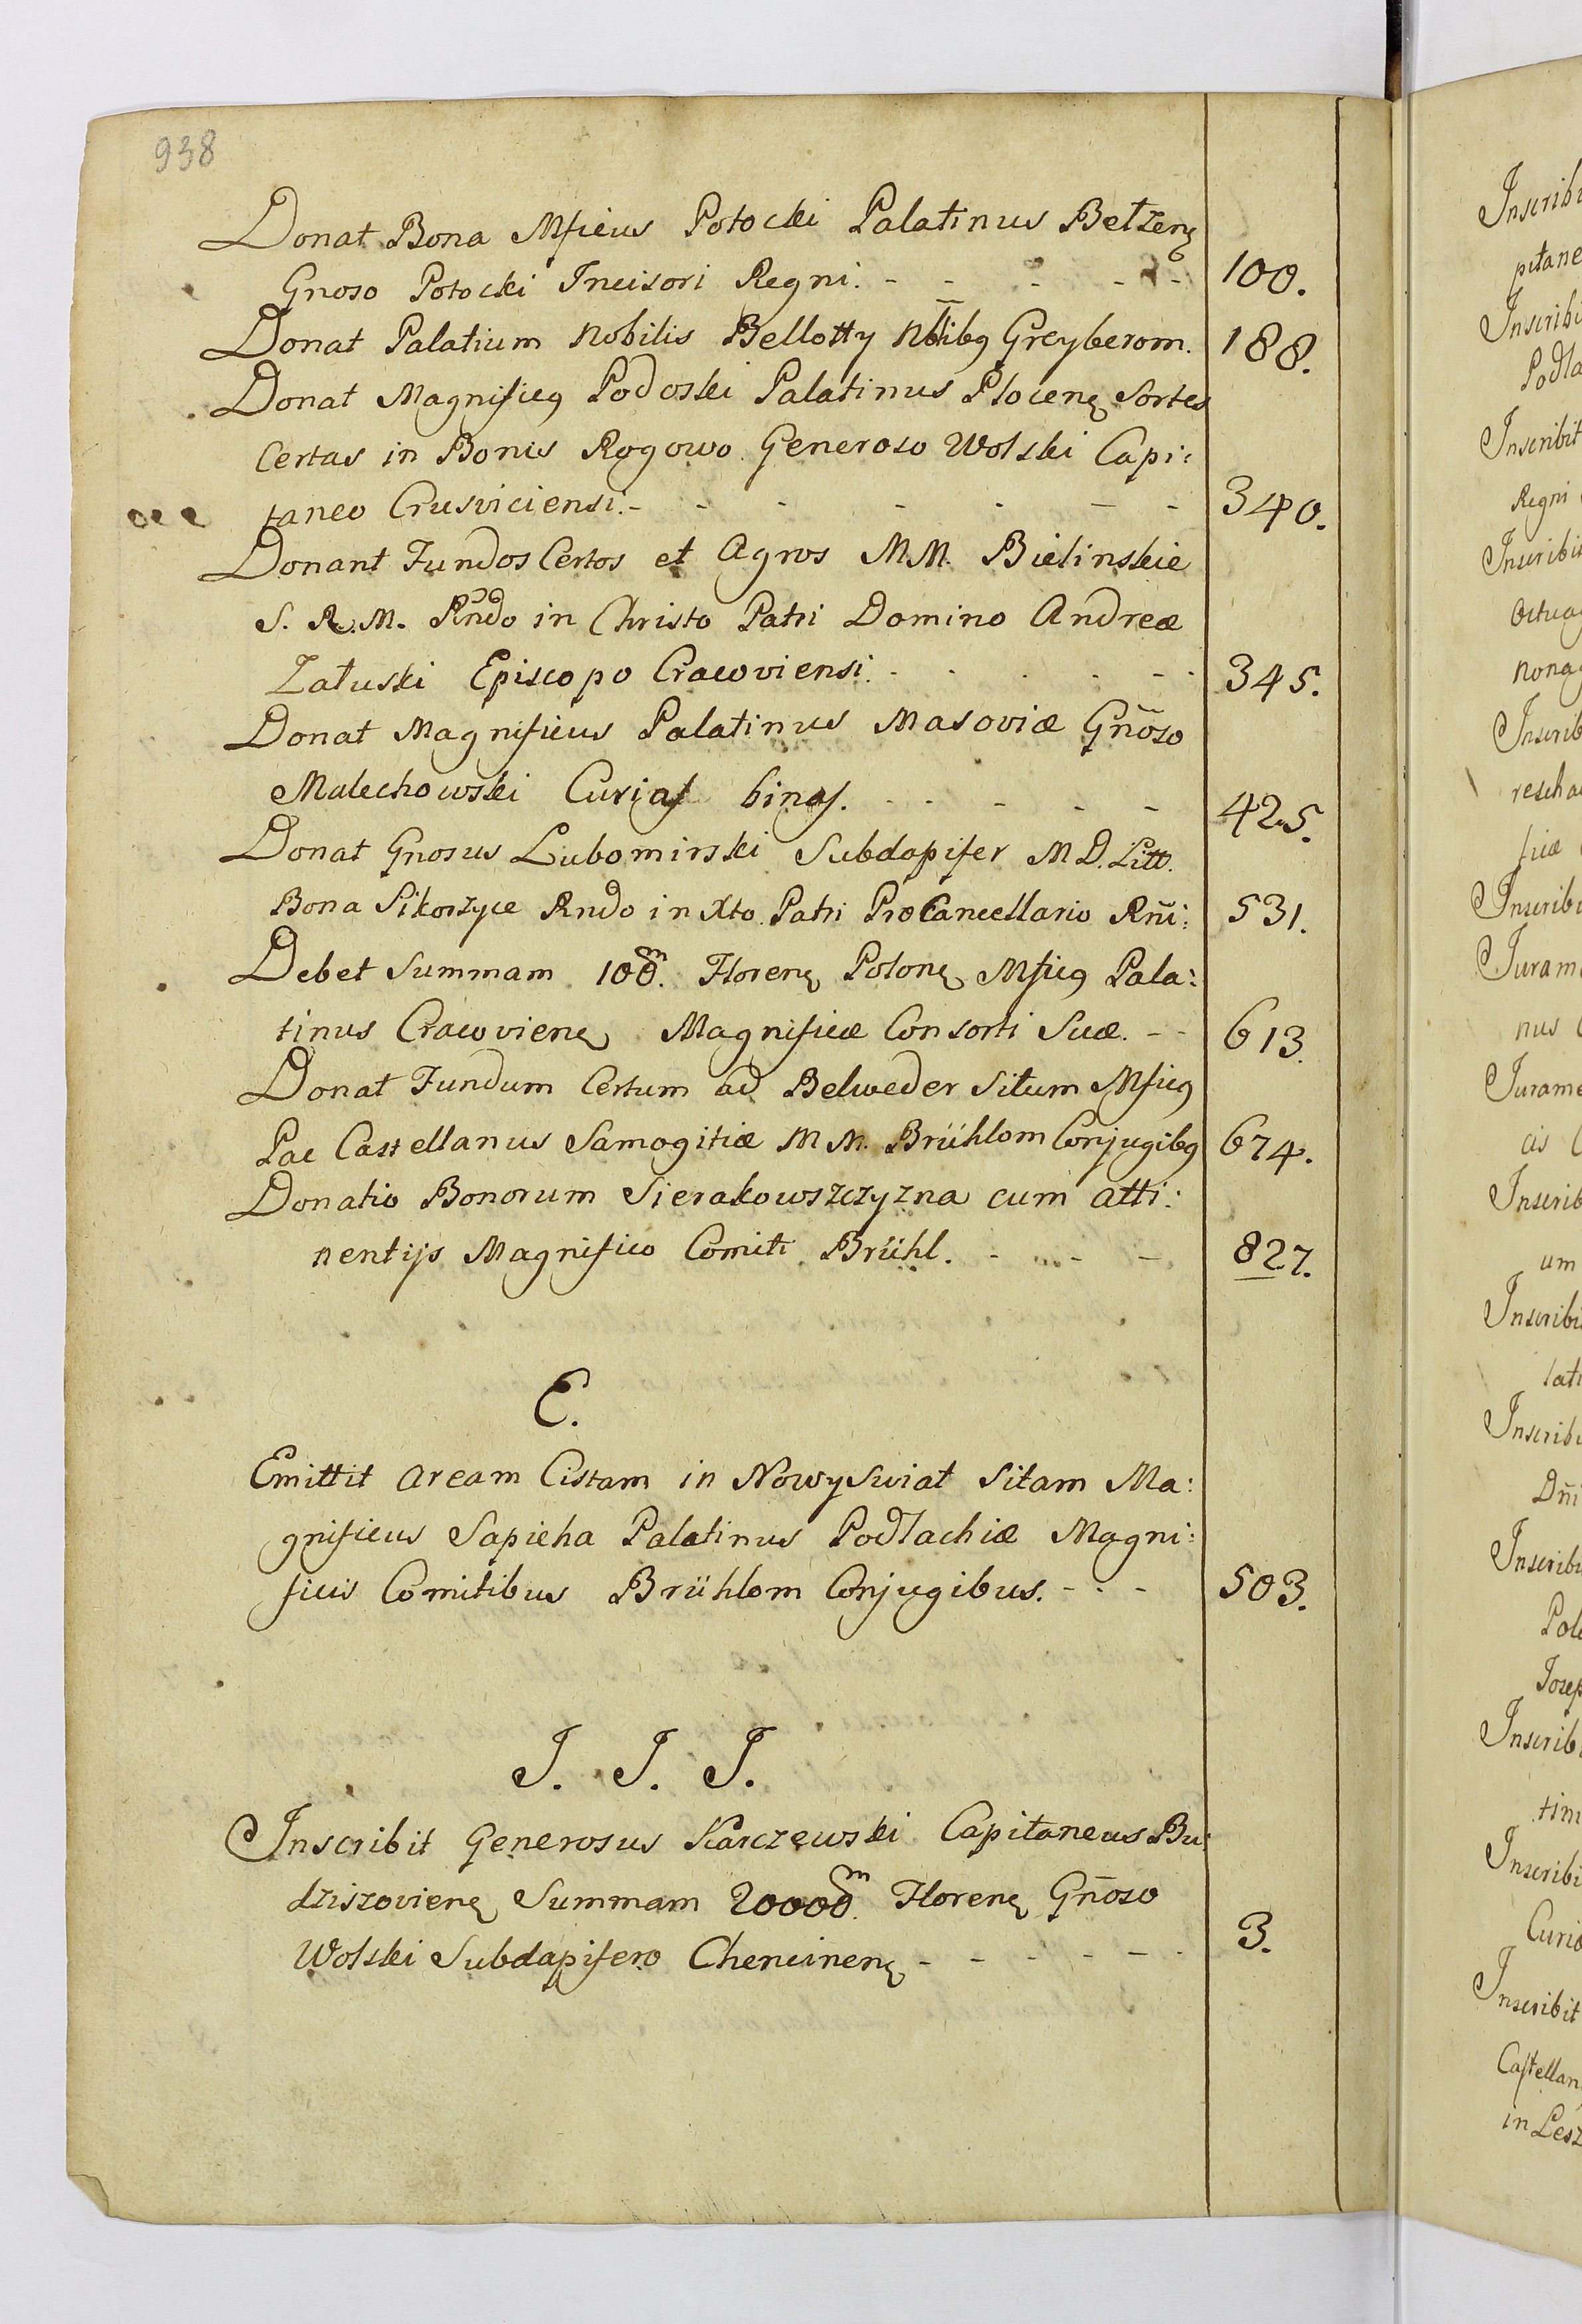 938
Donat Bona Mficus Potocki Palatinus Bełzenę
Gnoso Potocki Incisori Regni. - - - - - 100.
Donat Palatium Nobilis Bellotty Nbłibg Greyberom. 188.
Donat Magnificg Podoski Palatinus Płocenę Sortes
Certas in Bonis Rogowo Generoso Wolski Capi:
taneo Crusviciensi. - - - - - - 340.
Donant Fundos Certos et Agros M.M. Bielinskie
S. R. M. Rndo in Christo Patri Domino Andreæ
Załuski Episcopo Cracoviensi. - - - - - 345.
Donat Magnificus Palatinus Masoviæ Gñoso
Malechowski Curias binas. - - - - - 425.
Donat Gnosus Lubomirski Subdapifer M.D. Litt.
Bona Sikorzyce Rndo in Xto Patri ProCancellario Rñi: 531.
Debet Summam 100.m Florenę Polonę Mficg Pala:
tinus Cracovienę Magnificæ Consorti Suæ. - - 613.
Donat Fundum Certum ad Belweder Situm Mficg
Pac Castellanus Samogitiæ M M. Brühlom Conjugibg 674.
Donatio Bonorum Sierakowszczyzna cum atti:
nentijs Magnifico Comiti Brühl. - - - - 827.
E.
Emittit Aream Cistam in Nowy Swiat Sitam Ma:
gnificus Sapieha Palatinus Podlachiæ Magni:
ficis Comitibus Brühlom Conjugibus. - - - 503.
J. J. J.
Inscribit Generosus Karczewski Capitaneus Bu:
dziszovienę Summam 20000.m Florenę Gñoso
Wolski Subdapifero Chencinenę - - - - - 3.
Inscrib
pitane
Inscribi
Podla
Inscribit
Regni
Inscribit
Octua
nona
Inscrib
rescha
ficæ
Inscribi
Juram
nus
Jurame
cis
Inscrib
um
Inscribi
lati
Inscribi
Dñi
Inscribi
Pol
Josep
Inscrib
tin
Inscribi
Curi
Inscribit
Castellan
in Lesz